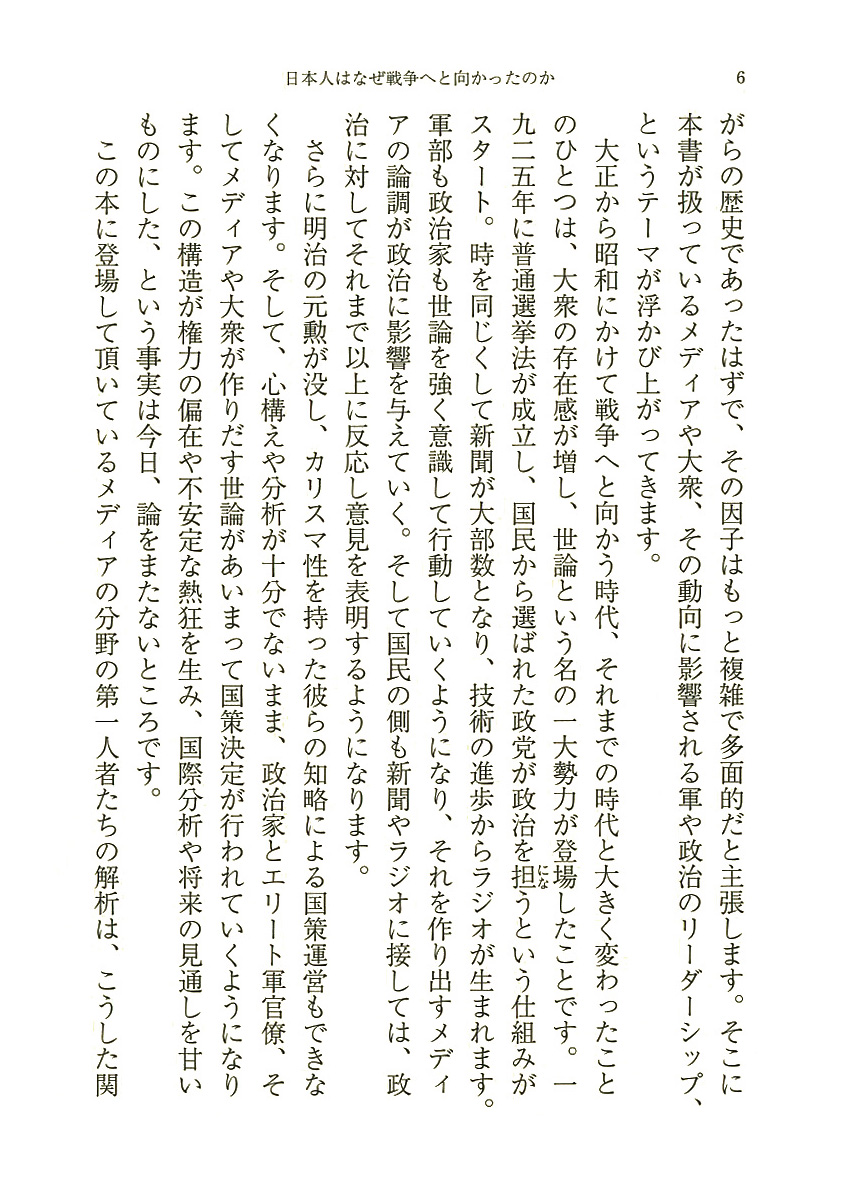 日本人はなぜ戦争へと向かったのか
6
がらの歴史であったはずで、その因子はもっと複雑で多面的だと主張します。そこに
本書が扱っているメディアや大衆、その動向に影響される軍や政治のリーダーシップ、
というテーマが浮かび上がってきます。
大正から昭和にかけて戦争へと向かう時代、それまでの時代と大きく変わったこと
のひとつは、大衆の存在感が増し、世論という名の一大勢力が登場したことです。一
九二五年に普通選挙法が成立し、国民から選ばれた政党が政治を担うという仕組みが
にな
スタート。時を同じくして新聞が大部数となり、技術の進歩からラジオが生まれます。
軍部も政治家も世論を強く意識して行動していくようになり、それを作り出すメディ
アの論調が政治に影響を与えていく。そして国民の側も新聞やラジオに接しては、政
治に対してそれまで以上に反応し意見を表明するようになります。
さらに明治の元勲が没し、カリスマ性を持った彼らの知略による国策運営もできな
くなります。そして、心構えや分析が十分でないまま、政治家とエリート軍官僚、そ
してメディアや大衆が作りだす世論があいまって国策決定が行われていくようになり
ます。この構造が権力の偏在や不安定な熱狂を生み、国際分析や将来の見通しを甘い
ものにした、という事実は今日、論をまたないところです。
この本に登場して頂いているメディアの分野の第一人者たちの解析は、こうした関